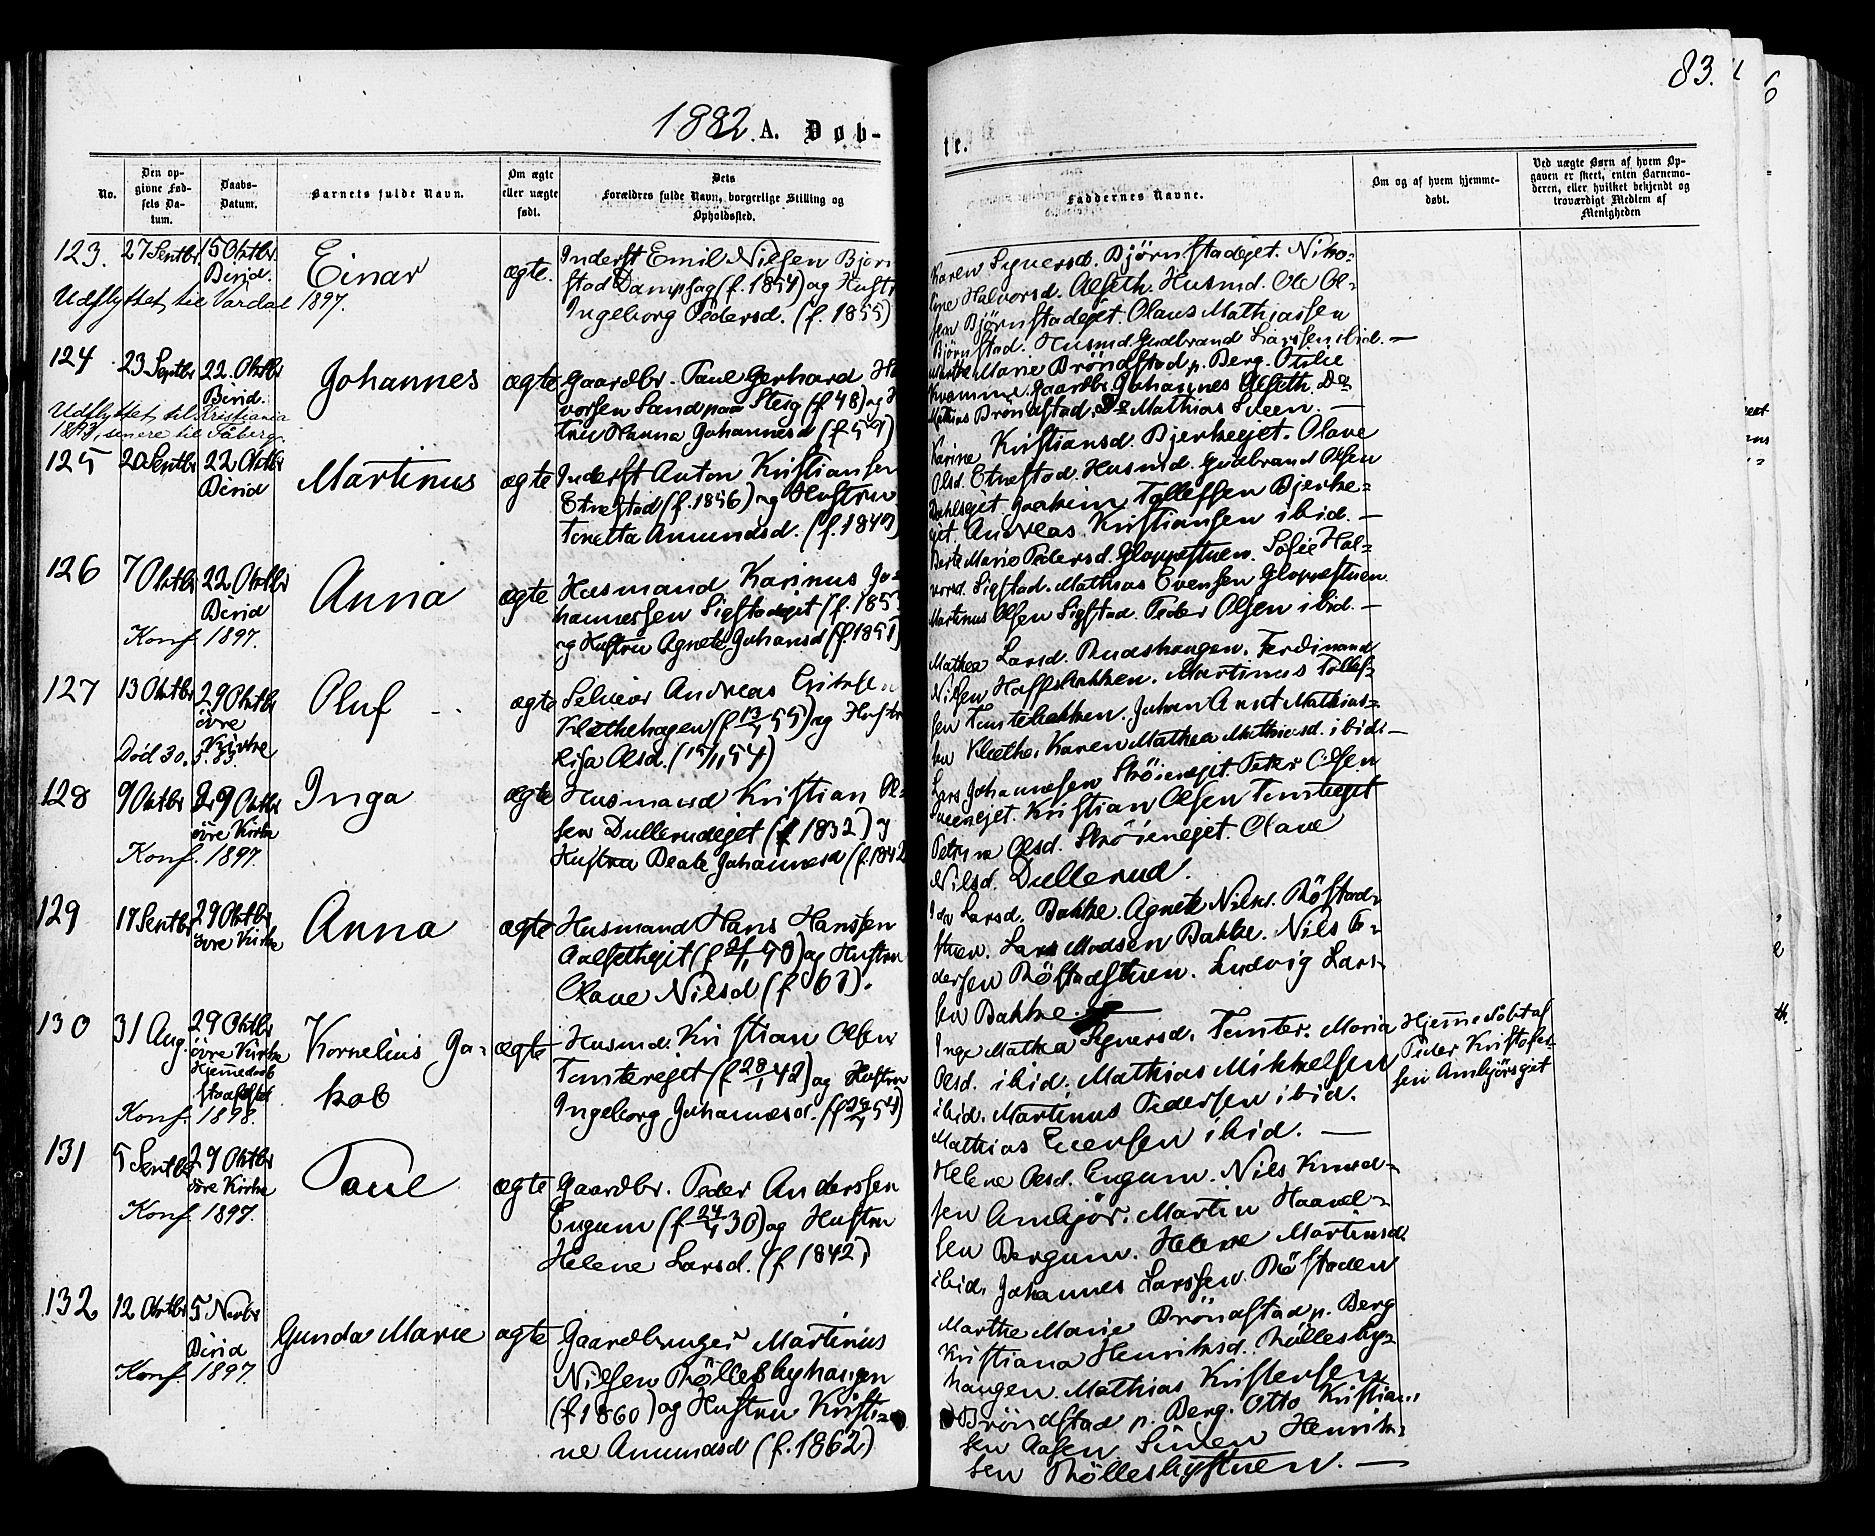 83.
1882. A. Døb-
te.
No.
Den op-
givne Fød-
sels Da-
tum.
Daabs-
Datum.
Barnets fulde Navn.
Om ægte
eller uægte
født.
Dets
Forældres fulde Navn, borgerlige Stilling og
Opholdssted.
Faddernes Navne.
Om og af hvem hjemme-
døbt.
Ved uægte Børn af hvem Op-
gaven er skeet, enten Barnemo-
deren, eller hvilket bekjendt og
troværdigt Medlem af
Menigheden
123.
27 Septbr
15 Oktbr.
Birid.
Udflyttet til Vardal 1897.
Einar
ægte.
Inderst Emil Nielsen Bjørn
stad Dampsag (f. 1854) og Hustr
Ingeborg Pedersd. (f. 1855)
Karen Syversd. Bjørnstadejet. Niko-
line Halvorsd. Alseth. Husmd. Ole Ol-
sen Bjørnstadejet. Olaus Mathiassen
Bjørnstad. Husmd. Gudbrand Larssen ibid. —
124
23 Septbr
22. Oktbr
Birid.
Udflyttet til Kristiania
senere til Faaberg
Johannes
ægte
Gaardbr. Paul Gerhard H
vorsen Sand paa Steig (f 48) og H
tru Johannesd (f 57)
Marthe Marie Bröndstad p. Berg. Otilie
Kramme. Gaardbr. Johannes Alseth. Do
Mathias Bröndstad. Do Mathias Sveen. —
125
20 Septbr
22 Oktbr
Birid
Martinus
ægte
Inderst Anton Kristiansen
Etnestad (f. 1856) og Hustru
Tonetta Amundsd. (f. 1847)
Karine Kristiansd. Bjerkeejet. Olave
Olsd. Etnestad. Husmd. Gudbrand Olsen
Joakim Tollefsen Bjerke-
ejet. Andreas Kristiansen ibid. —
126
7 Oktbr
22. Oktbr
Birid
Konf. 1897.
Anna
ægte
Husmand Karinus Jo-
hannessen Sigstadejet (f. 185
og Hustru Agnete Johansd (f 1851)
Berte Marie Pedersd. Gloppestuen. Sofie Hal-
vorsd. Sigstad. Mathias Evensen Gloppestuen
Martinus Olsen Sigstad. Peder Olsen ibid. —
127
13 Oktbr
29 Oktbr
övre
Kirke
Död 30. 5. 83.
Oluf
ægte
Selveier Andreas Eriksen
Klæthehagen (f 13/ 55) og Hustr
Lisa Olsd. (15/11 54)
Mathea Larsd. Rudshaugen. Ferdinand
Nilsen Hoffsbakken. Martinus Tollef-
sen Tomtebakken. Johan Arnt Mathias-
sen Klæthe. Karen Mathea Mathiasd. ibid. —
128
9 Oktbr
29 Oktbr
övre Kirke
Konf. 1897.
Inga
ægte
Husmand Kristian Ol-
sen Dullerudejet (f 1832) og
Hustru Beate Johannesd (f. 1842
Lars Johannesen Ströienejet. Peter Olsen
Sveenejet. Kristian Olsen Tomteejet
Petrine Olsd. Ströienejet. Olave
Nilsd. Dullerud.
129
17 Septbr
29 Oktbr
övre Kirke
Anna
ægte
Husmand Hans Hanssen
Aalsethejet (f 2/1 70) og Hustru
Olave Nilsd (f 61).
Ida Larsd. Bakke. Agnete Nilsd. Röstad-
stuen. Lars Madsen Bakke. Nils Pe-
dersen Röstadstuen. Ludvig Lars-
sen Bakke. —
130
31 Aug.
29 Oktbr
övre Kirke
Hjemmedaab
stadfæstet
Konf. 1898.
Kornelius Ja-
kob
ægte
Husmd. Kristian Olsen
Tomterejet (f 28/1 42) og Hustru
Ingeborg Johannesd. (f 54)
Inge Mathea Syversd. Tomter. Maria
Olsd. ibid. Mathias Mikkelsen
ibid. Martinus Pedersen ibid.
Mathias Evensen ibid. —
Hjemmedöbt af
Peder Kristofer-
sen Ambjörsejet
131
5 Septbr
29 Oktbr
övre Kirke
Konf. 1897.
Paul
ægte
Gaardbr. Peder Anderssen
Engum (f 24/4 30) og Hustru
Helene Larsd. (f. 1842)
Helene Olsd. Engum. Nils Knud-
sen Ambjör. Martin Haavel-
sen Bergum. Helene Martinsd.
ibid. Johannes Larssen Röstaden
132
12 Oktbr
5 Novbr
Birid
Konf. 1897
Gunda Marie
ægte
Gaardbruger Martinius
Nilsen Röllesbyhaugen
(f 1860) og Hustru Kristi-
ne Amundsd (f. 1862)
Marthe Marie Bröndstad p. Berg
Kristiana Henriksd. Röllesby-
haugen. Mathias Kristensen
Bröndstad p. Berg. Otto Kristian-
sen Aasen. Simen Henrik-
sen Röllesbystuen. —